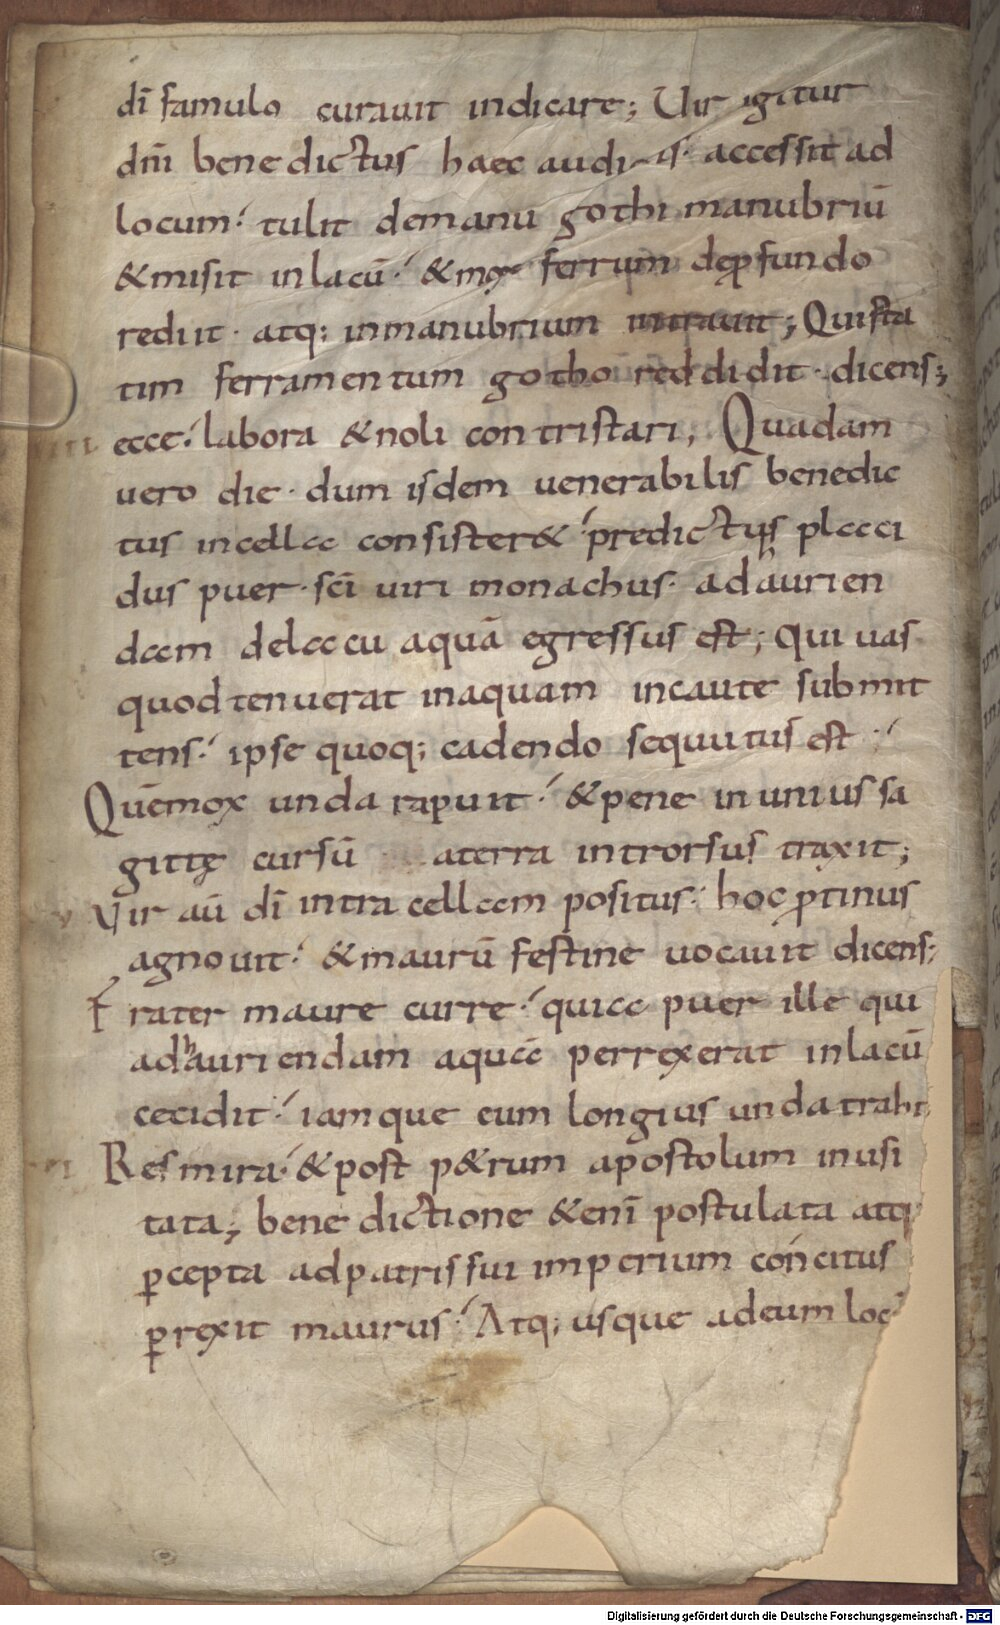 dī famulo curauit indicare; Uir igitur
dn̄i benedictus haec audi is· accessit ad
locum· tulit demanu gothi manubriū
&misit inlacū· &mox ferrum deꝓfundo
rediit· atq; inmanubrium intrauit; Quista
tim ferramentum gotho reddidit· dicens;
ecce· labora &noli contristari; Quadam
uero die· dum isdem uenerabilis benedic
tus incella consister& predictus placi
dus puer· sc̄i uiri monachus· adhaurien
dam delacu aquā egressus est; Qui uas
quod tenuerat inaquam incaute submit
tens· ipse quoq; cadendo sequutus est·
Quēmox unda rapuit· &pene inunius sa
gittę cursū aterra introrsus traxit;
Uir aū dī intra cellam positus· hoc ꝓtinus
agnouit· &maurū festine uocauit dicens;
Frater maure curre· quia puer ille qui
adhauriendam aquā perrexerat inlacū
cecidit· iamque eum longius unda trahit
vi Res mira· &post p&rum apostolum inusi
tata; benedictione &enī postulata atq;
ꝑcepta adpatris sui imperium concitus
ꝑrexit maurus· Atq; usque adeum loc
Digitalisierung gefördert durch die Deutsche Forschungsgemeinschaft - DFG